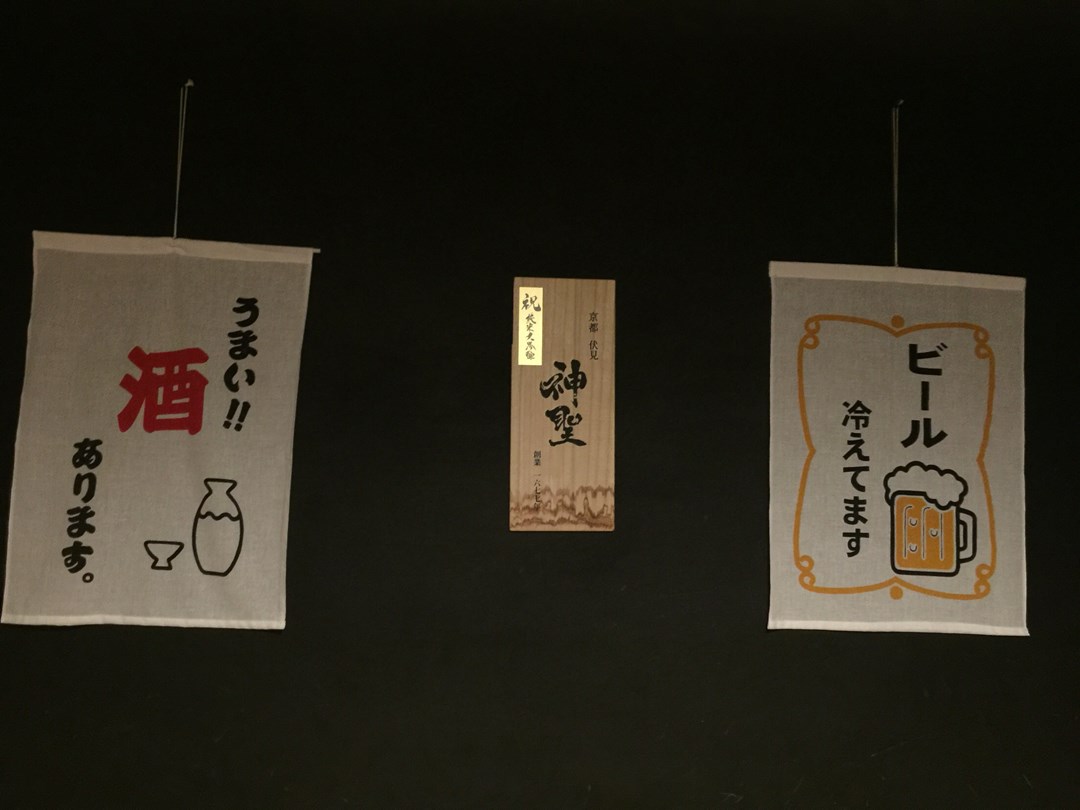 うまい!!
酒
あります。
京都 伏見
神聖
創業 一六七七年
祝
ビール
冷えてます